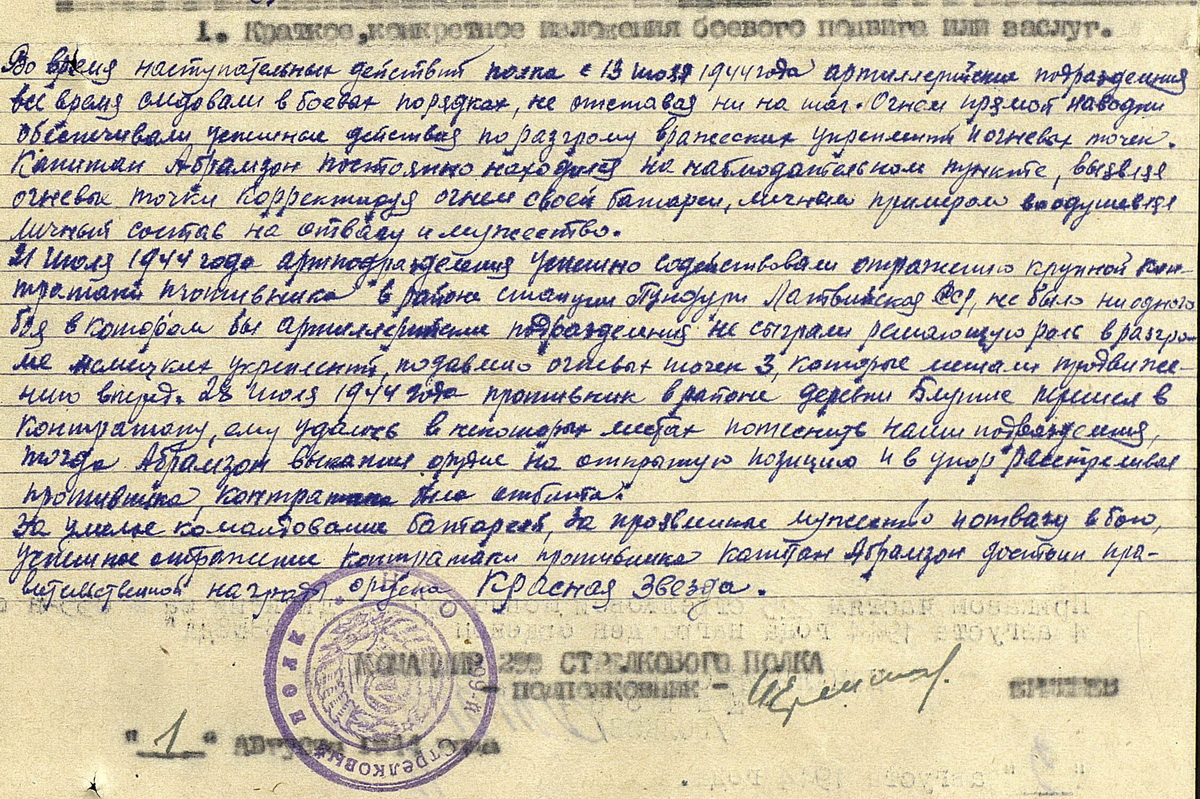 1. Краткое, конкретное изложения боевого подвига или заслуг.
Во время наступательных действий полка с 13 июля 1944 года артиллерийские подразделения
всё время следовали в боевых порядках, не отставая ни на шаг. Огнем прямой наводки
обеспечивали успешные действия по разгрому вражеских укреплений и огневых точек.
Капитан Абрамзон постоянно находился на наблюдательном пункте, выявляя
огневые точки корректируя огнем своей батареи, личным примером воодушевляя
личный состав на отвагу и мужество.
21 июля 1944 года артподразделения успешно содействовали отражению крупной кон-
тратаки противника в районе станции Пундури Латвийская ССР, не было ни одного
боя в котором бы артиллерийские подразделения не сыграли решающую роль в разгро-
ме немецких укреплений, подавлено огневых точек 3, которые мешали продвиже-
нию вперед. 28 июля 1944 года противник в районе деревни перешел в
контратаку, ему удалось в некоторых местах потеснить наши подразделения,
тогда Абрамзон выкатил орудие на открытую позицию и в упор расстреливая
противника, контратака была отбита.
За умелое командование батареей, за проявленные мужество и отвагу в бою,
успешное отражение контратаки противника капитан Абрамзон достоин пра-
вительственной награды ордена Красная Звезда.
КОМАНДИР СТРЕЛКОВОГО ПОЛКА
- ПОДПОЛКОВНИК -
"1" Августа 1944 года
Стрелковый полк